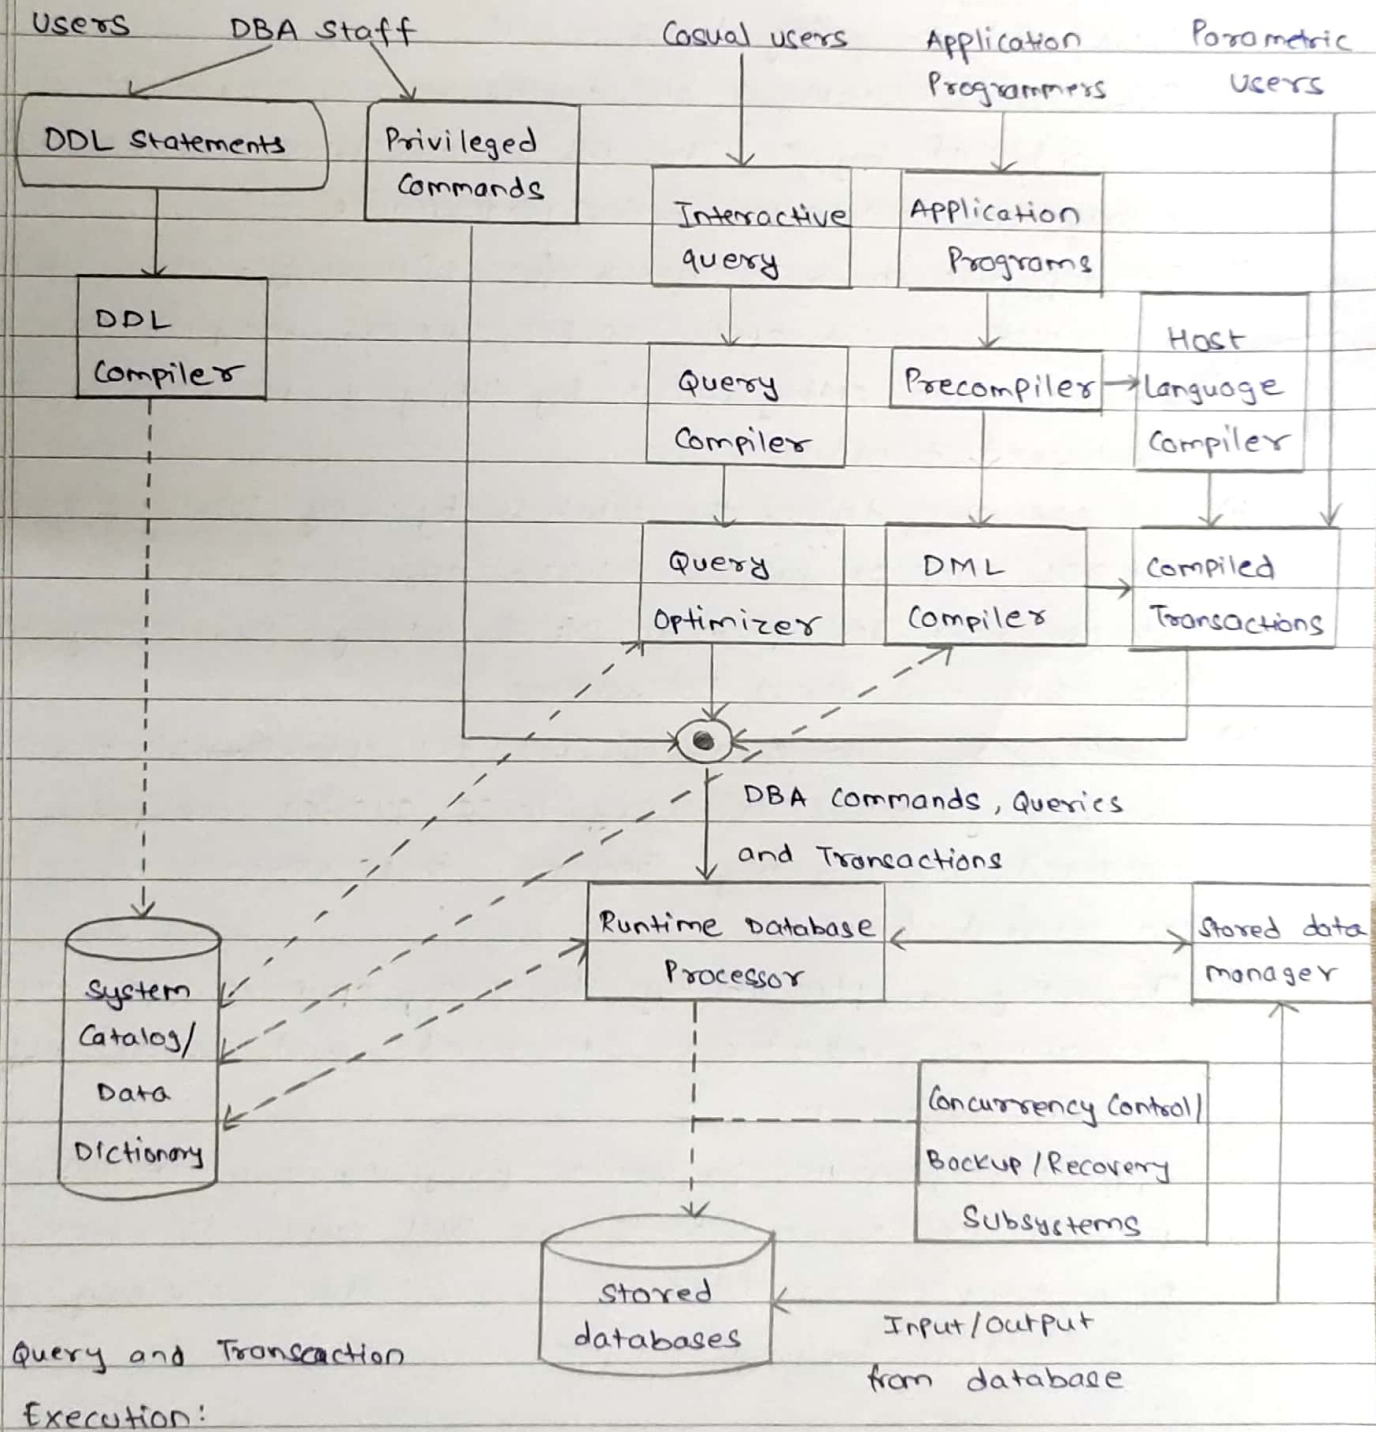 Users DBA Staff Casual users Application Parametric
Programmers Users
DDL Statements
Privileged
Commands
Interactive
query
Application
Programs
DDL
Compiler
Query
Compiler
Precompiler
Host
Language
Compiler
Query
Optimizer
DML
Compiler
Compiled
Transactions
DBA Commands, Queries
and Transactions
Runtime Database
Processor
Stored data
manager
System
Catalog/
Data
Dictionary
Concurrency Control/
Backup/Recovery
Subsystems
Stored
databases
Input/Output
from database
Query and Transcaction
Execution: